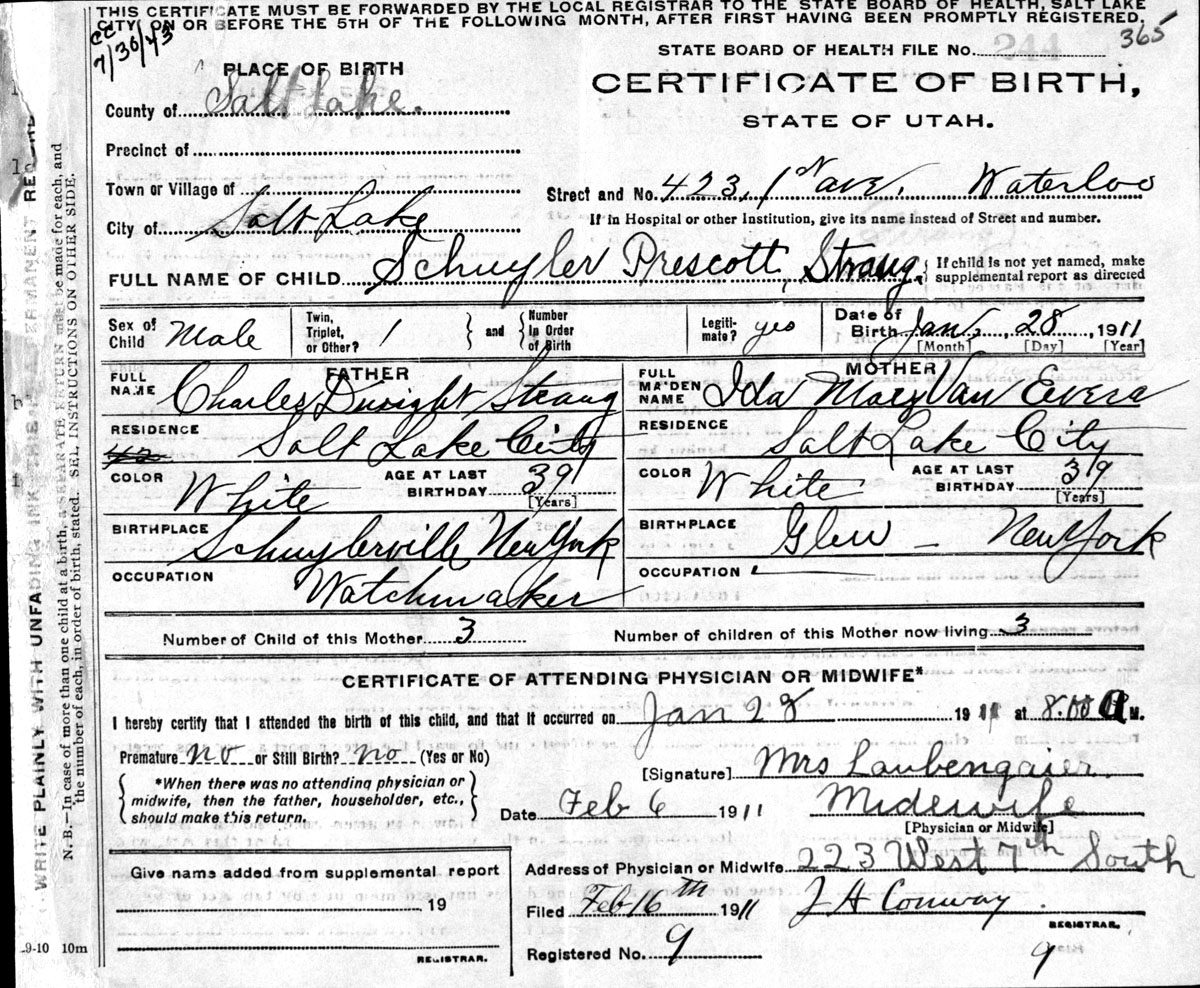 THIS CERTIFICATE MUST BE FORWARDED BY THE LOCAL REGISTRAR TO THE STATE BOARD OF HEALTH, SALT LAKE
CITY, ON OR BEFORE THE 5TH OF THE FOLLOWING MONTH, AFTER FIRST HAVING BEEN PROMPTLY REGISTERED.
7/30/43
365
STATE BOARD OF HEALTH FILE No. 244
PLACE OF BIRTH
CERTIFICATE OF BIRTH,
STATE OF UTAH.
County of Salt Lake.
Precinct of
Town or Village of
Street and No. 423, 1st Ave, Waterloo
City of Salt Lake
If in Hospital or other Institution, give its name instead of Street and number.
FULL NAME OF CHILD Schuyler Prescott, Strang { If child is not yet named, make
supplemental report as directed
Sex of Child Male
Twin, Triplet, or Other? 1
and
Number In Order of Birth
Legiti-mate? yes
Date of Birth Jan, 28, 1911
[Month] [Day] [Year]
FATHER
MOTHER
FULL NAME Charles Dwight Strang
FULL MAIDEN NAME Ida May Van Evera
RESIDENCE Salt Lake City
RESIDENCE Salt Lake City
COLOR White AGE AT LAST BIRTHDAY 39 [Years]
COLOR White AGE AT LAST BIRTHDAY 39 [Years]
BIRTHPLACE Schuylerville New York
BIRTHPLACE Glen - New York
OCCUPATION Watchmaker
OCCUPATION
Number of Child of this Mother 3
Number of children of this Mother now living 3
CERTIFICATE OF ATTENDING PHYSICIAN OR MIDWIFE*
I hereby certify that I attended the birth of this child, and that it occurred on Jan 28 1911 at 8.00 A M.
Premature no or Still Birth? no (Yes or No)
[Signature] Mrs Laubengaier.
*When there was no attending physician or
midwife, then the father, householder, etc.,
should make this return.
Date Feb 6 1911 Midewife
[Physician or Midwife]
Give name added from supplemental report
19
REGISTRAR.
Address of Physician or Midwife 223 West 7th South
Filed Feb 16th 1911 J H Conway.
REGISTRAR.
Registered No. 9
9
9-10 10m
WRITE PLAINLY WITH UNFADING INK THIS IS A PERMANENT RECORD
N. B.—In case of more than one child at a birth, a SEPARATE RETURN must be made for each, and
the number of each, in order of birth, stated. SEE INSTRUCTIONS ON OTHER SIDE.